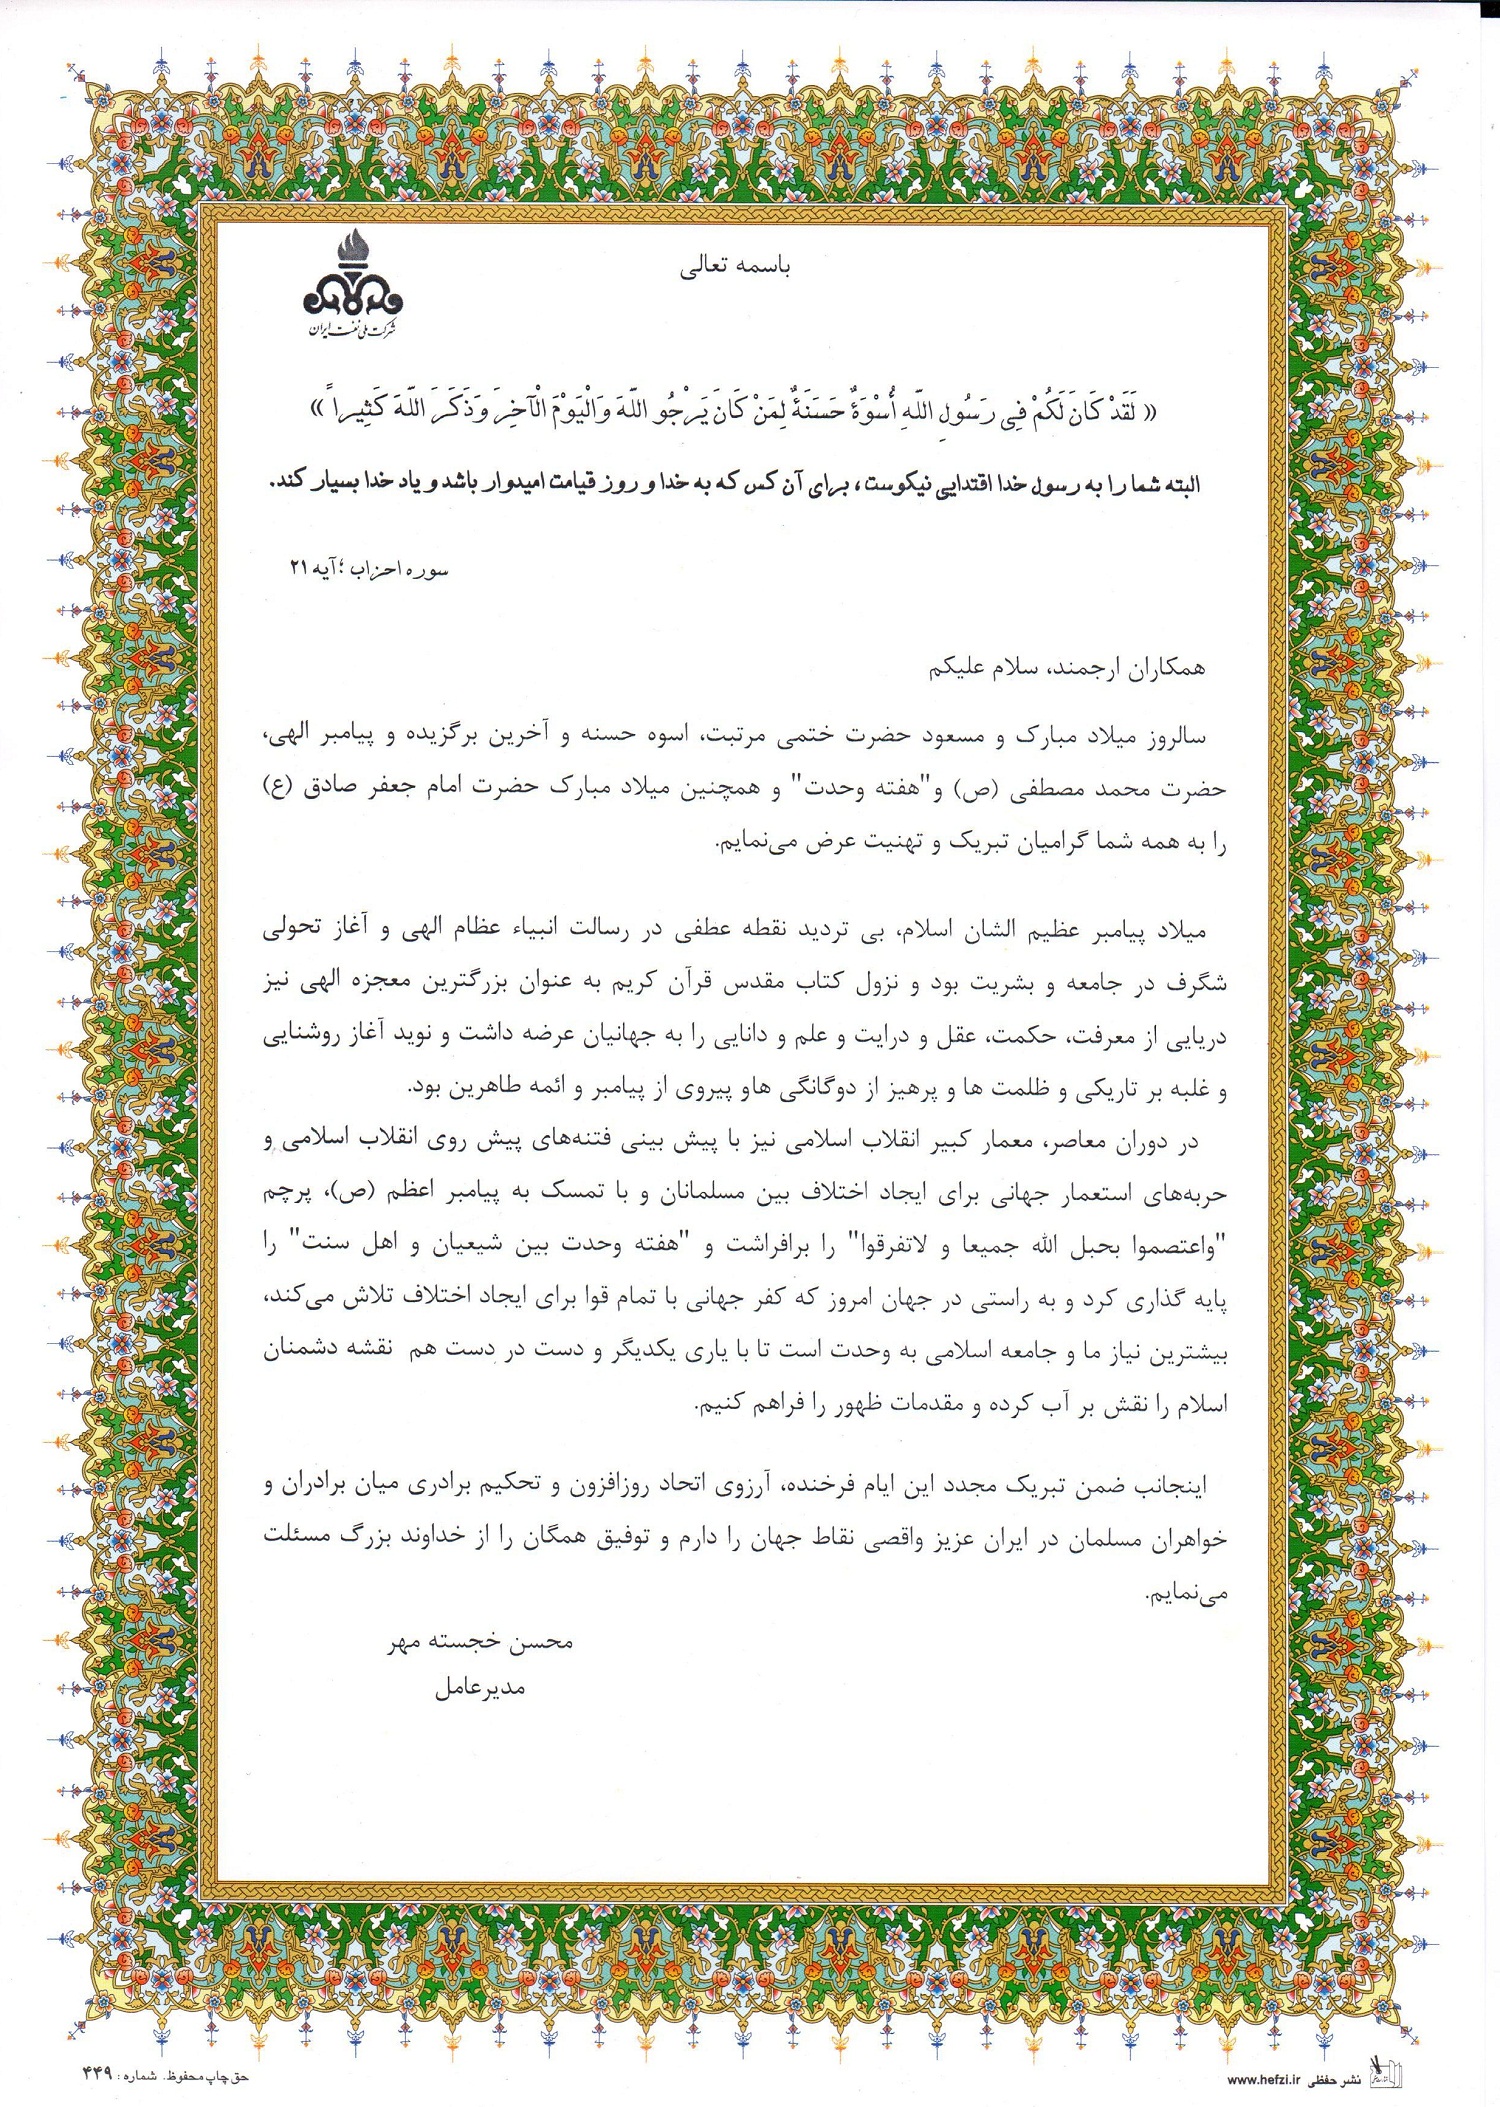 باسمه تعالی
شرکت ملی نفت ایران
« لَقَدْ كَانَ لَكُمْ فِي رَسُولِ اللَّهِ أُسْوَةٌ حَسَنَةٌ لِمَنْ كَانَ يَرْجُو اللَّهَ وَالْيَوْمَ الْآخِرَ وَذَكَرَ اللَّهَ كَثِيراً »
البته شما را به رسول خدا اقتدایی نیکوست، برای آن کس که به خدا و روز قیامت امیدوار باشد و یاد خدا بسیار کند.
سوره احزاب ؛آیه ۲۱
همکاران ارجمند، سلام علیکم
سالروز میلاد مبارک و مسعود حضرت ختمی مرتبت، اسوه حسنه و آخرین برگزیده و پیامبر الهی،
حضرت محمد مصطفی (ص) و"هفته وحدت" و همچنین میلاد مبارک حضرت امام جعفر صادق (ع)
را به همه شما گرامیان تبریک و تهنیت عرض می‌نمایم.
میلاد پیامبر عظیم الشان اسلام، بی تردید نقطه عطفی در رسالت انبیاء عظام الهی و آغاز تحولی
شگرف در جامعه و بشریت بود و نزول کتاب مقدس قرآن کریم به عنوان بزرگترین معجزه الهی نیز
دریایی از معرفت، حکمت، عقل و درایت و علم و دانایی را به جهانیان عرضه داشت و نوید آغاز روشنایی
و غلبه بر تاریکی و ظلمت ها و پرهیز از دوگانگی هاو پیروی از پیامبر و ائمه طاهرین بود.
در دوران معاصر، معمار کبیر انقلاب اسلامی نیز با پیش بینی فتنه‌های پیش روی انقلاب اسلامی و
حربه‌های استعمار جهانی برای ایجاد اختلاف بین مسلمانان و با تمسک به پیامبر اعظم (ص)، پرچم
"واعتصموا بحبل الله جمیعا و لاتفرقوا" را برافراشت و "هفته وحدت بین شیعیان و اهل سنت" را
پایه گذاری کرد و به راستی در جهان امروز که کفر جهانی با تمام قوا برای ایجاد اختلاف تلاش می‌کند،
بیشترین نیاز ما و جامعه اسلامی به وحدت است تا با یاری یکدیگر و دست در دست هم نقشه دشمنان
اسلام را نقش بر آب کرده و مقدمات ظهور را فراهم کنیم.
اینجانب ضمن تبریک مجدد این ایام فرخنده، آرزوی اتحاد روزافزون و تحکیم برادری میان برادران و
خواهران مسلمان در ایران عزیز واقصی نقاط جهان را دارم و توفیق همگان را از خداوند بزرگ مسئلت
می‌نمایم.
محسن خجسته مهر
مدیرعامل
نشر حفظی www.hefzi.ir
حق چاپ محفوظ. شماره: ۴۴۹